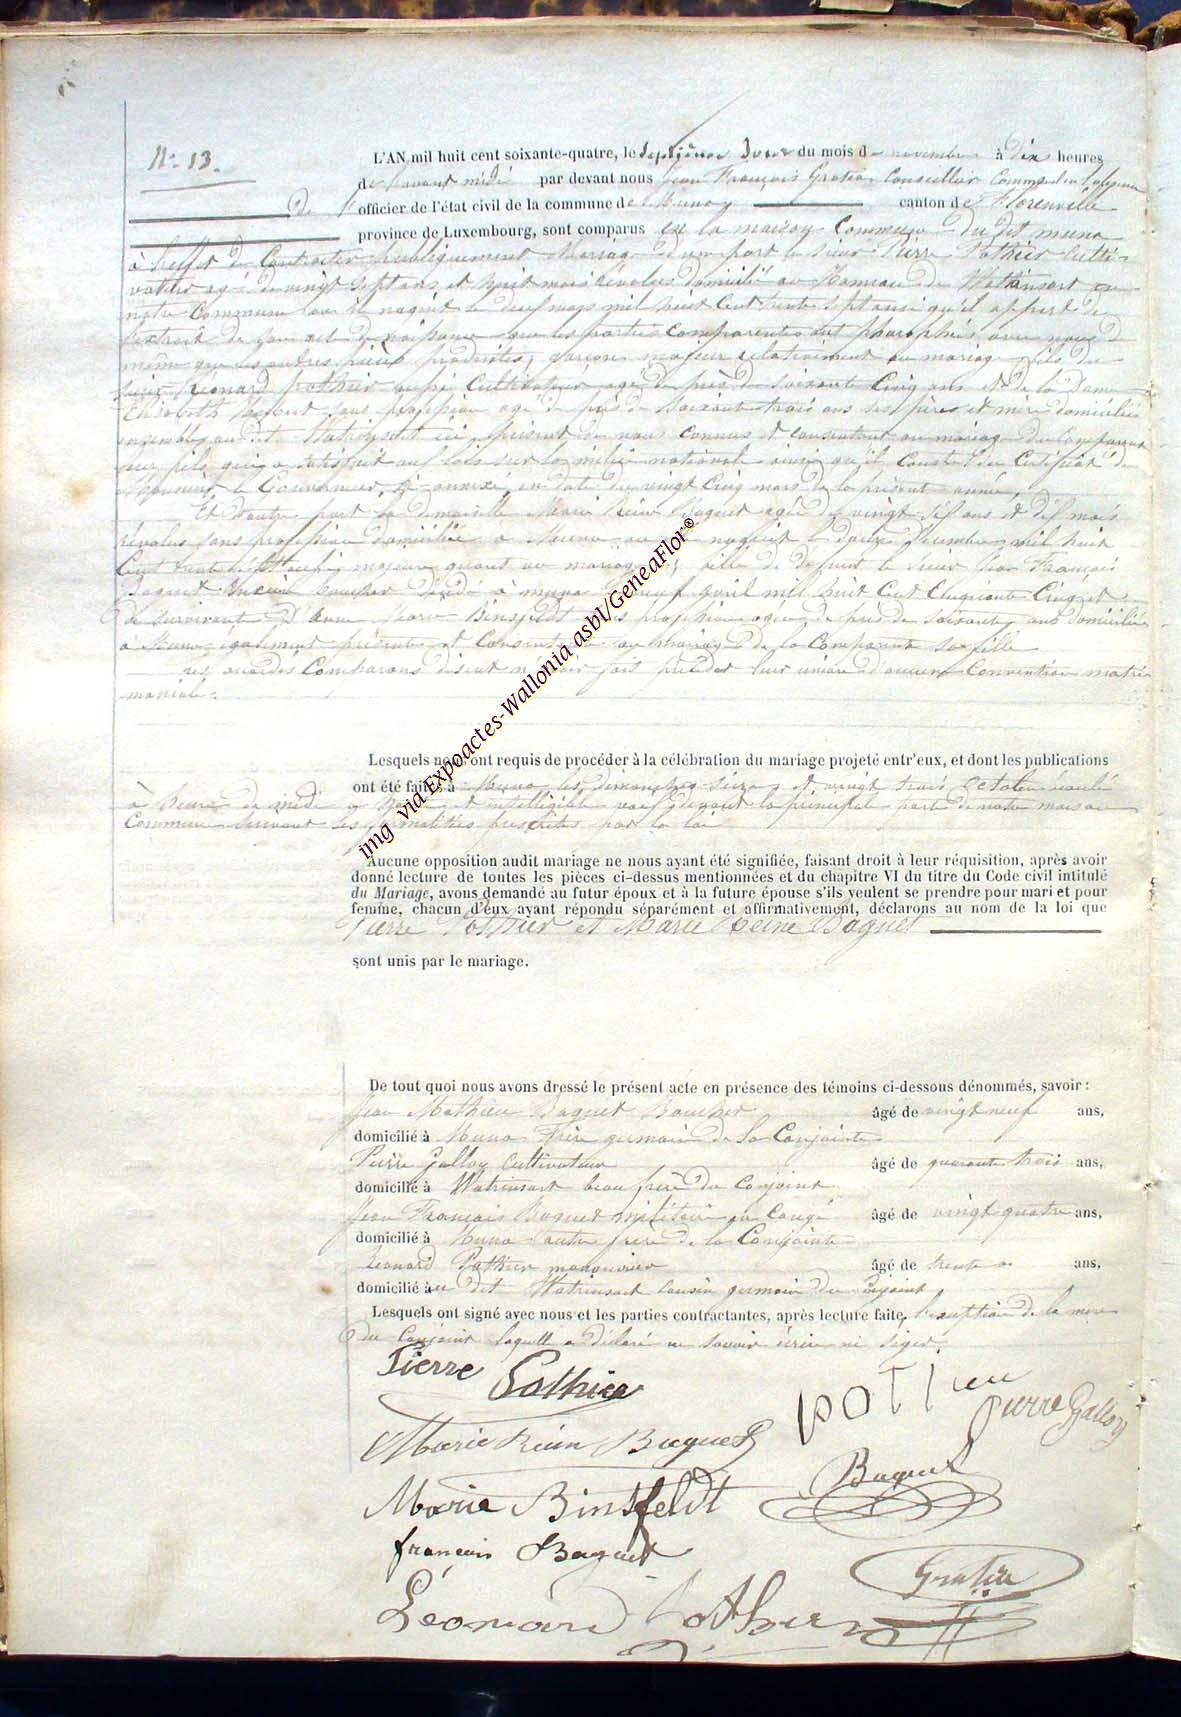 N° 13.
L'AN mil huit cent soixante-quatre, le septième jour du mois de novembre à dix heures
de avant midi par devant nous Jean François Gratia Conseiller Communal
officier de l'état civil de la commune de Muno canton de Florenville
province de Luxembourg, sont comparus en la maison Commune du dit muno
à l'effet de Contracter publiquement Mariage d'une part le sieur Pierre Pothier Culti-
vateur agé de vingt sept ans et huit mois révolus domicilié au Hameau de Watrinsart en
notre Commune où il naquit le deux mars mil huit cent trente sept ainsi qu'il appert de
l'extrait de son acte de naissance que les parties comparantes ont paraphés avec nous de
même que les autres pièces produites, garçon majeur relativement au mariage, fils du
sieur Léonard Pothier aussi Cultivateur agé de près de soixante Cinq ans et de la Dame
Elisabeth sans profession agé de près de Soixante trois ans ses père et mère domiciliés
ensemble au dit Watrinsart ici présent de nous connus et consentant au mariage du Comparant
leur fils qui a satisfait aux lois sur la milice nationale ainsi qu'il Conste du Certificat de
Monsieur le Gouverneur, ci-annexé en date du vingt Cinq mars de la présent année,
Et d'autre part la demoiselle Marie Reine Baguet agée de vingt ans et dix mois
révolus sans profession domiciliée à Muno où elle naquit le douze Décembre mil huit
Cent trente majeure quant au mariage, fille de Défunt le sieur Jean François
Baguet Boucher décédé à muno neuf avril mil huit Cent Cinquante Cinq et
de survivante D'Anne Marie Binsfeldt sans profession agée de près de soixante ans domiciliée
à Muno également présente et Consentant au Mariage de la Comparante sa fille
Les Comparans disent n'avoir fait précéder leur union d'aucun Convention matri-
moniale.
Lesquels nous ont requis de procéder à la célébration du mariage projeté entr'eux, et dont les publications
ont été faites à Muno les dimanches seize et vingt trois octobre écoulé
à heure de midi à haute et intelligible voix devant la principale porte de notre maison
Commune suivant les formalités prescrites par la loi
Aucune opposition audit mariage ne nous ayant été signifiée, faisant droit à leur réquisition, après avoir
donné lecture de toutes les pièces ci-dessus mentionnées et du chapitre VI du titre du Code civil intitulé
du Mariage, avons demandé au futur époux et à la future épouse s'ils veulent se prendre pour mari et pour
femme, chacun d'eux ayant répondu séparément et affirmativement, déclarons au nom de la loi que
Pierre Pothier et Marie Reine Baguet
sont unis par le mariage.
De tout quoi nous avons dressé le présent acte en présence des témoins ci-dessous dénommés, savoir :
Jean Mathieu Baguet Boucher âgé de vingt neuf ans,
domicilié à Muno Frère germain de la Conjointe
Pierre Galloy Cultivateur âgé de quarante trois ans,
domicilié à Watrinsart beau frère du Conjoint
Jean François Baguet militaire en Congé âgé de vingt quatre ans,
domicilié à Muno autre frère de la Conjointe
Léonard Pothier manouvrier âgé de trente ans,
domicilié à au dit Watrinsart Cousin germain du Conjoint
Lesquels ont signé avec nous et les parties contractantes, après lecture faite, l'exception de la mère
du Conjoint laquelle a déclaré ne savoir écrire ni signer.
Pierre Pothier
POTIIEU
Pierre Galloy
Marie Rein Baguet
Baguet
Marie Binsfeldt
françois Baguet
Gratia
Léonard Pothier
img via Expoactes-Wallonia asbl/GeneaFlor®